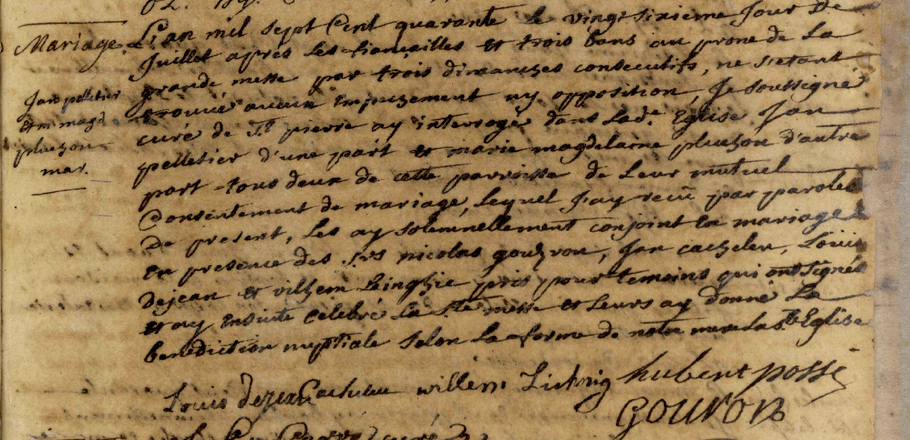 Mariage
Jan pelletier
et m. magd
pluzon
mar.
L'an mil sept Cent quarante le vingt sixieme Jour de
Juillet après Les fiançailles et trois bans au prone de La
grande messe par trois dimanches consecutifs, ne s'etant
trouvé aucun empechement ny opposition, Je soussigné
curé de St pierre ay interrogé dans Lade. Eglise Jan
pelletier d'une part et marie magdelaine pluzon d'autre
part tous deux de cette parroisse de Leur mutuel
Consentement de mariage, Lequel J'ay reçu par paroles
de present, Les ay solemnellement conjoint en mariage
En presence des Srs nicolas gouzron, Jan cachelen, Louis
dejean et vilhem Leinghie pris pour temoins qui ont signés
et ay ensuite celebré La Ste messe et Leurs ay donné La
benediction nuptiale selon La forme de notre mere La Ste Eglise
Louis dejean willem hubert posse
Gouron